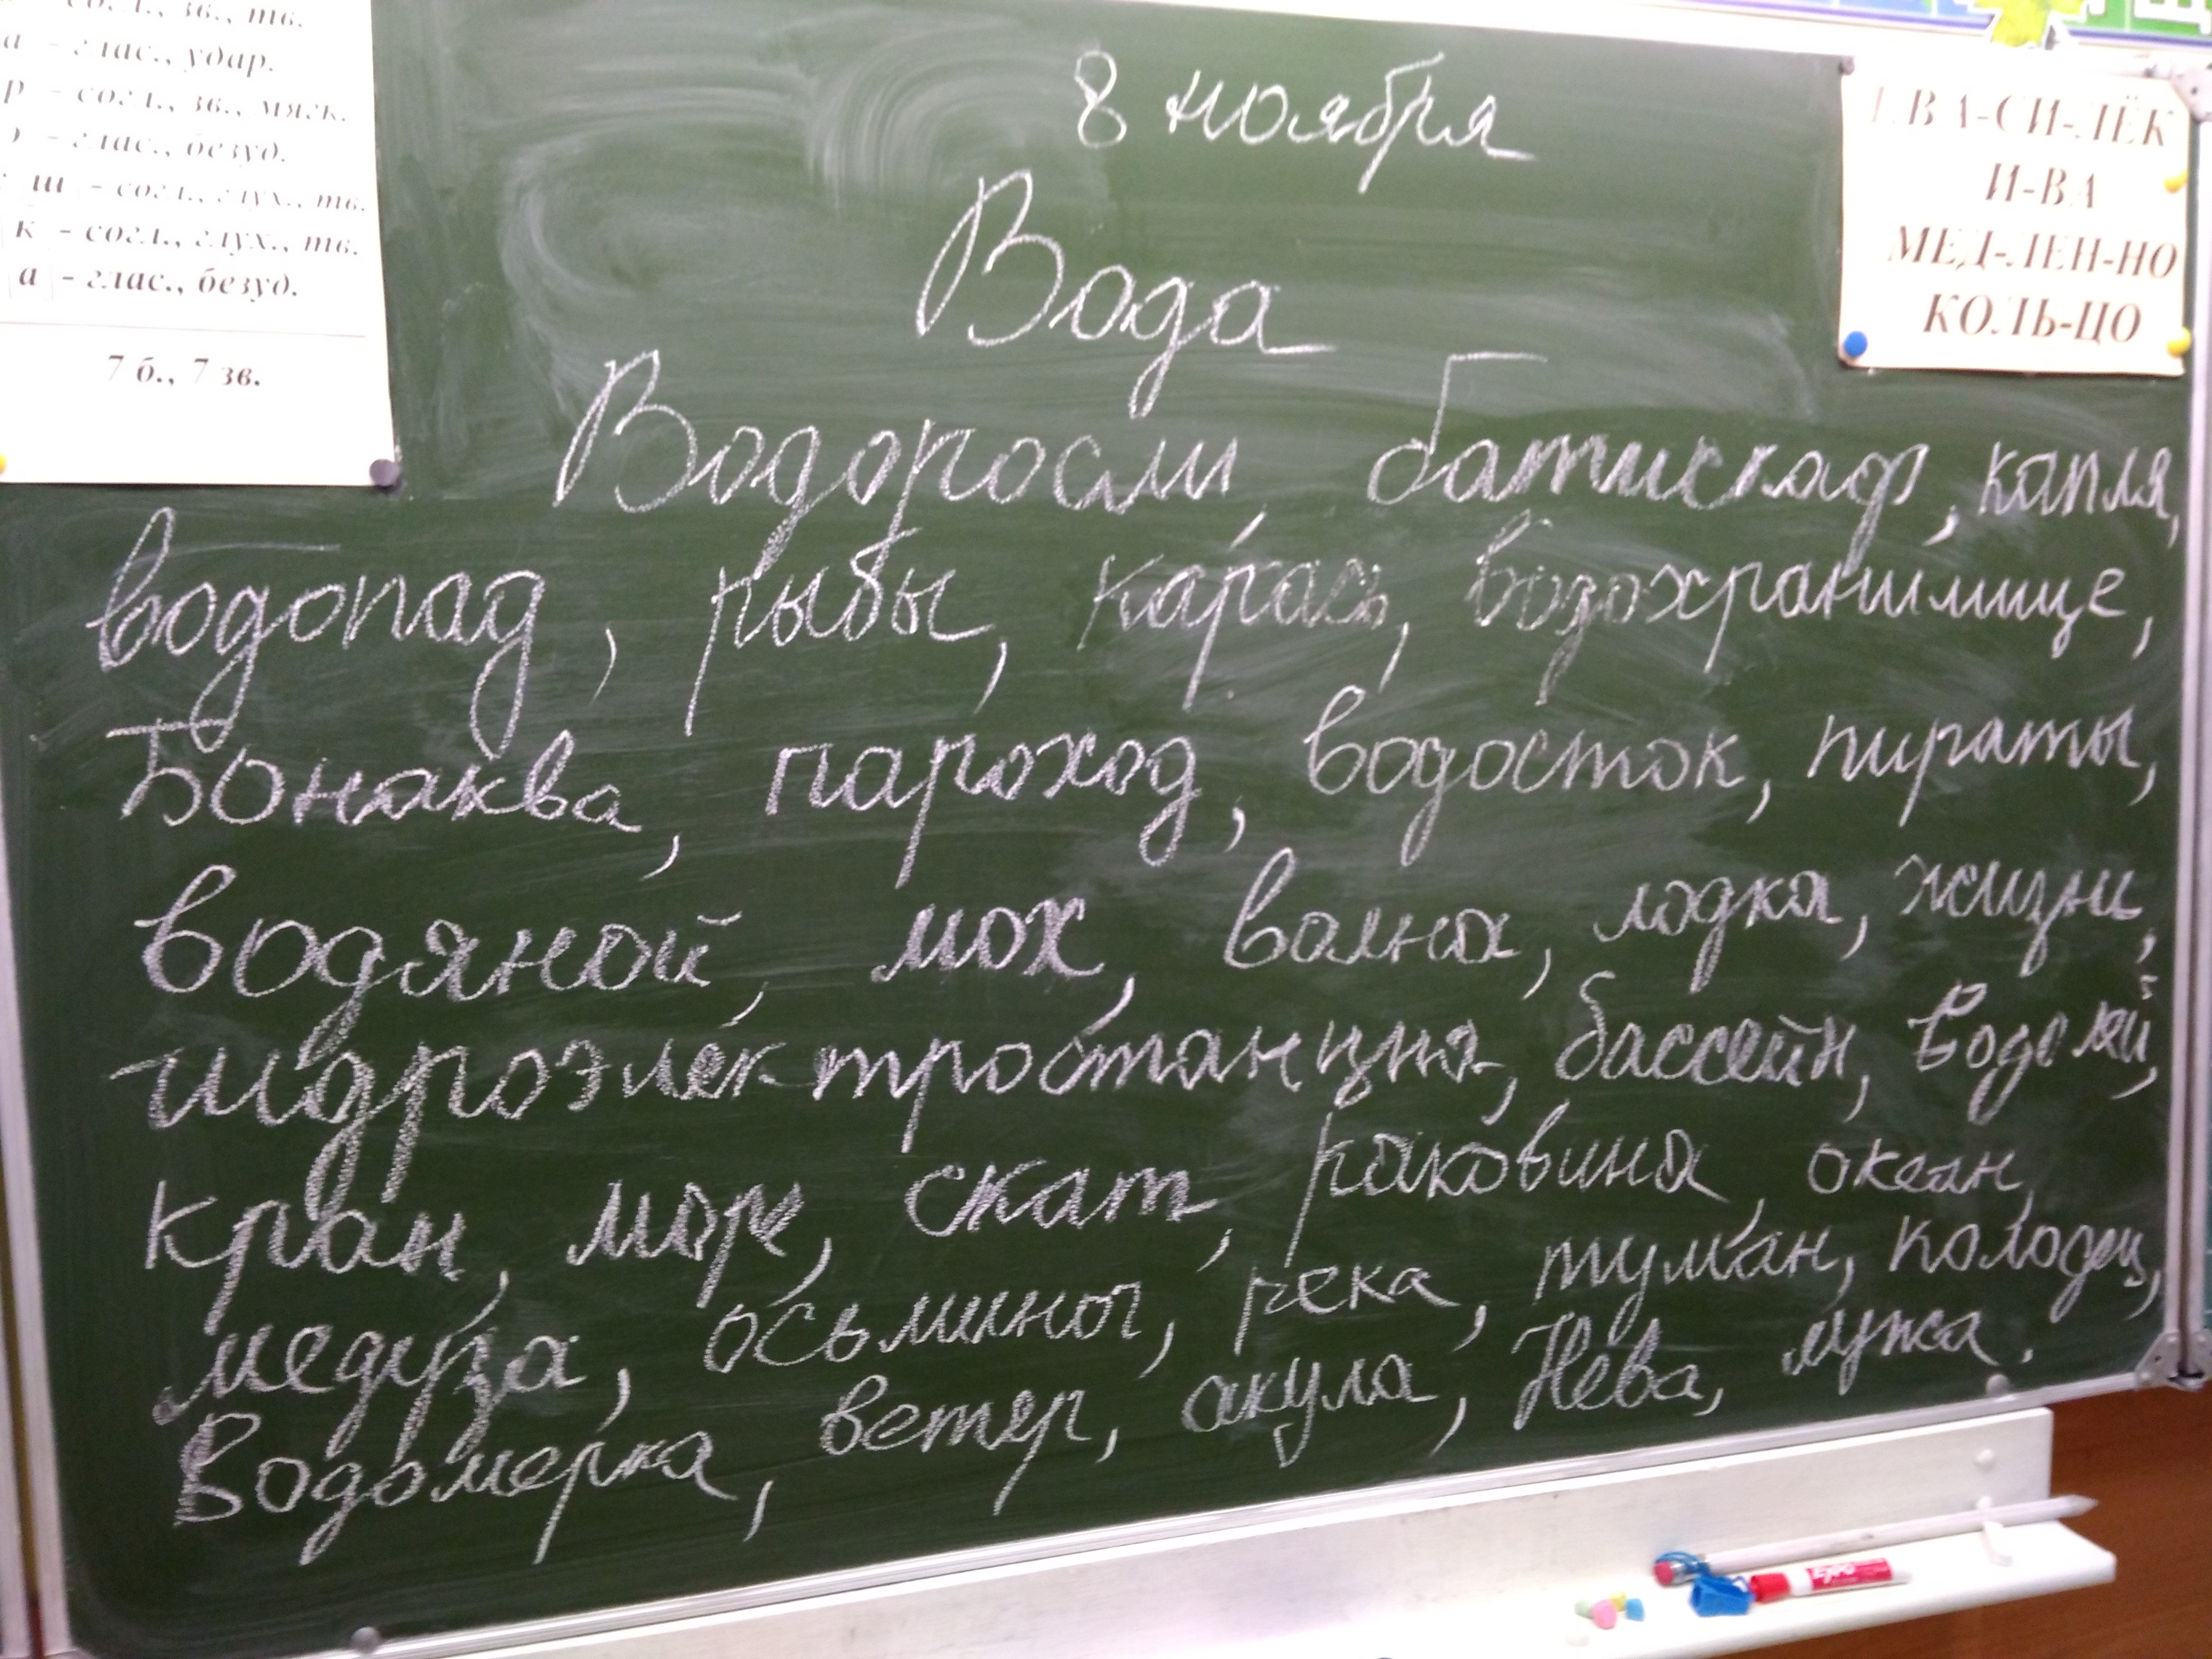 - согл., зв., тв.
а - глас., удар.
р - согл., зв., мягк.
- глас., безуд.
ш - согл., глух., тв.
к - согл., глух., тв.
а - глас., безуд.
7 б., 7 зв.
8 ноября
Вода
Водоросли, батискаф, капля,
водопад, рыбы, карась, водохранилище,
Бонаква, пароход, водосток, пираты,
водяной, мох, волна, лодка, жизнь,
гидроэлектростанция, бассейн, Водолей,
кран, море, скат, раковина, океан,
медуза, осьминог, река, туман, колодец,
Водомерка, ветер, акула, Нева, лужа.
ВА-СИ-ЛЁК
И-ВА
МЕД-ЛЕН-НО
КОЛЬ-ЦО
EXPO